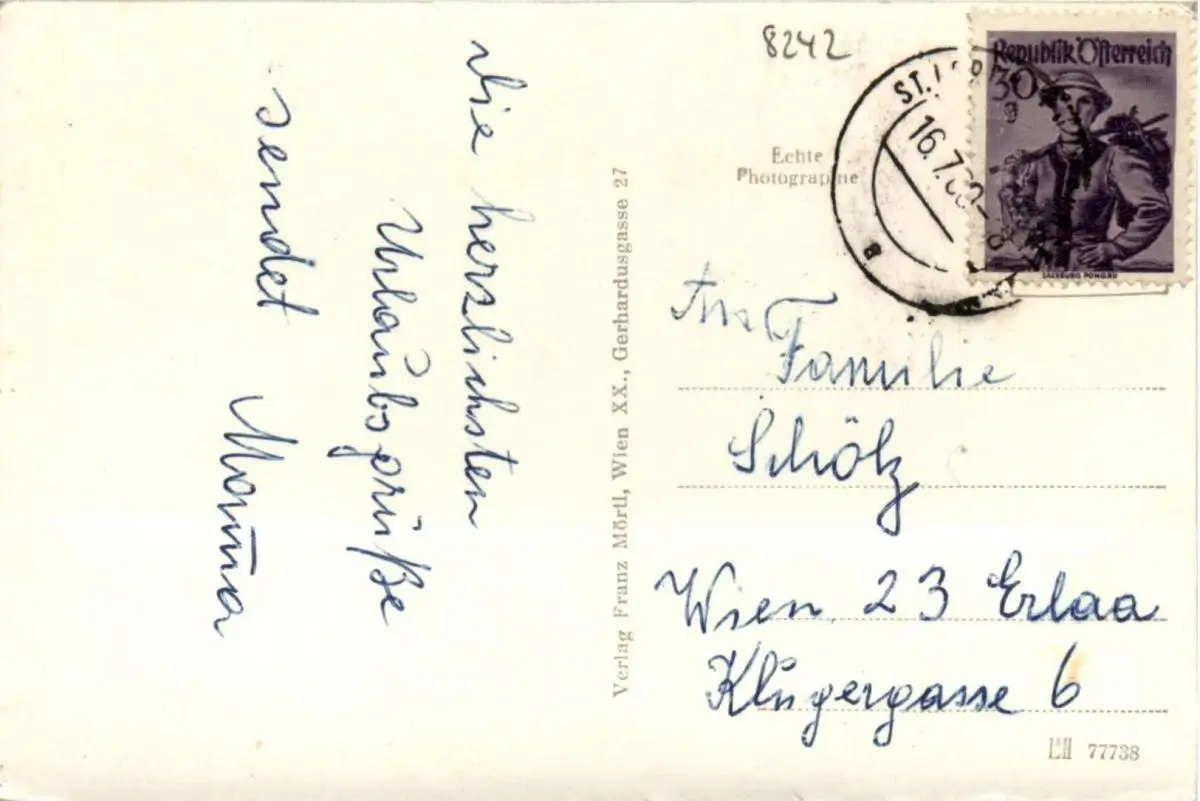 Die herzlichsten
Urlaubsgrüße
sendet Mama
Verlag Franz Mörtl, Wien XX., Gerhardusgasse 27
8242
Echte
Photographie
Republik Österreich
30
g
SALZBURG PONGAU
ST.
16.7.
B
An
Familie
Schölz
Wien 23 Erlaa
Klügergasse 6
77738